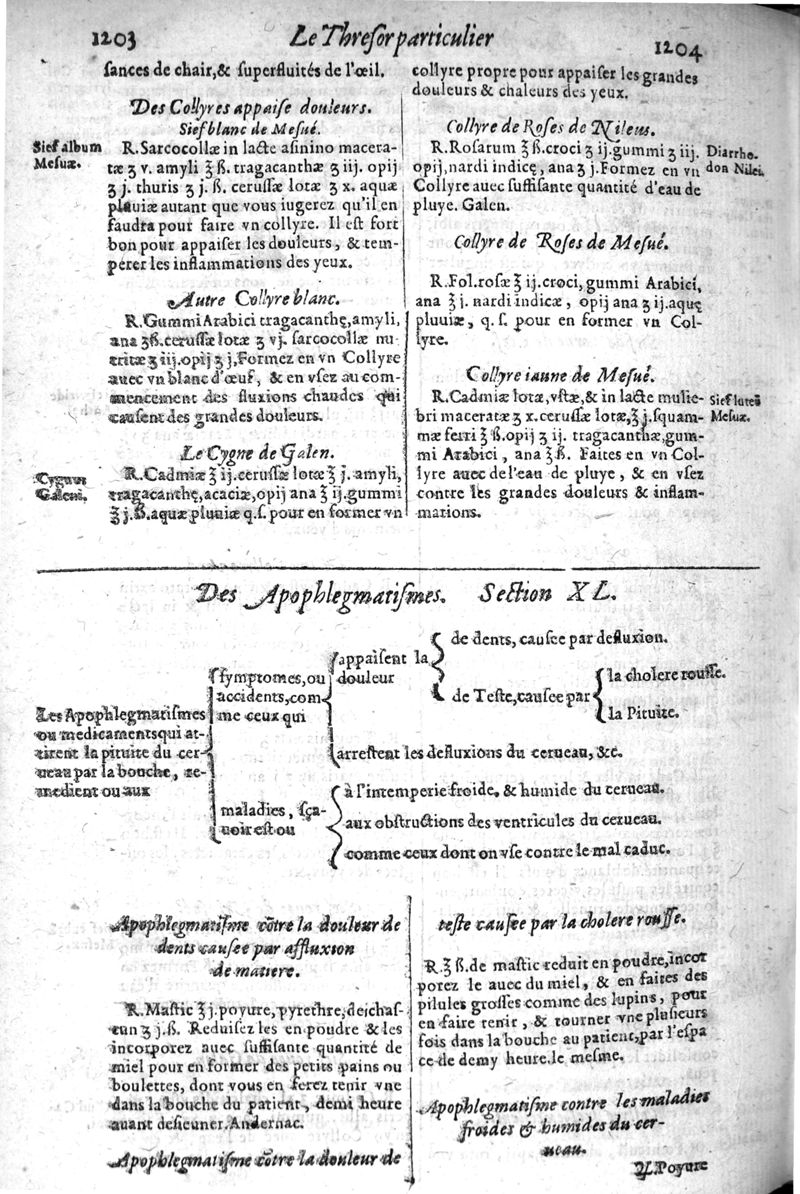 1203
Le Thresor particulier
1204
sances de chair, & superfluités de l'œil.
Des Collyres appaise douleurs.
Sief blanc de Mesué.
Sief album
Mesuæ.
R. Sarcocollæ in lacte asinino macera-
tæ ʒ v. amyli ℥ ß. tragacanthæ ʒ iij. opij
ʒ j. thuris ʒ j. ß. cerussæ lotæ ʒ x. aquæ
pluuiæ autant que vous iugerez qu'il en
faudra pour faire vn collyre. Il est fort
bon pour appaiser les douleurs, & tem-
perer les inflammations des yeux.
Autre Collyre blanc.
R. Gummi Arabici tragacanthę, amyli,
ana ʒß. cerussæ lotæ ʒ vj. sarcocollæ nu
tritæ ʒ iij. opij ʒ j, Formez en vn Collyre
auec vn blanc d'œuf, & en vsez au com-
mencement des fluxions chaudes qui
causent des grandes douleurs.
Le Cygne de Galen.
Cygnus
Galeni.
R. Cadmiæ ℥ ij. cerussæ lotæ ℥ j. amyli,
tragacanthę, acaciæ, opij ana ℥ ij. gummi
℥ j. ß. aquæ pluuiæ q.s. pour en former vn
collyre propre pour appaiser les grandes
douleurs & chaleurs des yeux.
Collyre de Roses de Nileus.
R. Rosarum ℥ ß. croci ʒ ij. gummi ʒ iij.
opij, nardi indicę, ana ʒ j. Formez en vn
Collyre auec suffisante quantité d'eau de
pluye. Galen.
Diarrho.
don Nilei.
Collyre de Roses de Mesué.
R. Fol. rosæ ℥ ij. croci, gummi Arabici,
ana ℥ j. nardi indicæ, opij ana ʒ ij. aquę
pluuiæ, q. s. pour en former vn Col-
lyre.
Collyre iaune de Mesué.
R. Cadmiæ lotæ, vstæ, & in lacte mulie-
bri maceratæ ʒ x. cerussæ lotæ, ℥ j. squam-
mæ ferri ℥ ß. opij ʒ ij. tragacanthæ, gum-
mi Arabici, ana ℥ ß. Faites en vn Col-
lyre auec de l'eau de pluye, & en vsez
contre les grandes douleurs & inflam-
mations.
Sief luteũ
Mesuæ.
Des Apophlegmatismes. Section XL.
Les Apophlegmatismes
ou medicaments qui at-
tirent la pituite du cer-
ueau par la bouche, re-
medient ou aux
symptomes, ou
accidents, com-
me ceux qui
appaisent la
douleur
de dents, causee par defluxion.
de Teste, causee par
la cholere rousse.
la Pituite.
arrestent les defluxions du cerueau, &c.
maladies, sça-
uoir est ou
à l'intemperie froide, & humide du cerueau.
aux obstructions des ventricules du cerueau.
comme ceux dont on vse contre le mal caduc.
Apophlegmatisme cõtre la douleur de
dents causee par affluxion
de matiere.
R. Mastic ℥ j. poyure, pyrethre, de chas-
cun ʒ j. ß. Reduisez les en poudre & les
incorporez auec suffisante quantité de
miel pour en former des petits pains ou
boulettes, dont vous en ferez tenir vne
dans la bouche du patient, demi heure
auant desieuner. Andernac.
Apophlegmatisme cõtre la douleur de
teste causee par la cholere rousse.
R. ℥ ß. de mastic reduit en poudre, incor
porez le auec du miel, & en faites des
pilules grosses comme des lupins, pour
en faire tenir, & tourner vne plusieurs
fois dans la bouche au patient, par l'espa
ce de demy heure. le mesme.
Apophlegmatisme contre les maladies
froides & humides du cer-
ueau.
R. Poyure